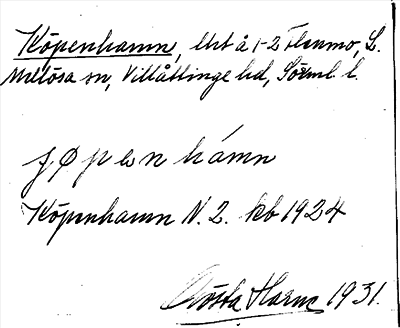 Köpenhamn, lht å 1-2 Flenmo, L.
Mellösa sn, Villåttinge hd, Sörml. l.
Köpenhamn N. 2. kb 1924
Gösta Harnc 1931.